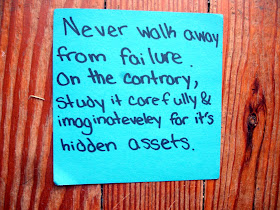 Never walk away
from failure.
On the controry,
study it carefully &
imaginateveley for it's
hidden assets.